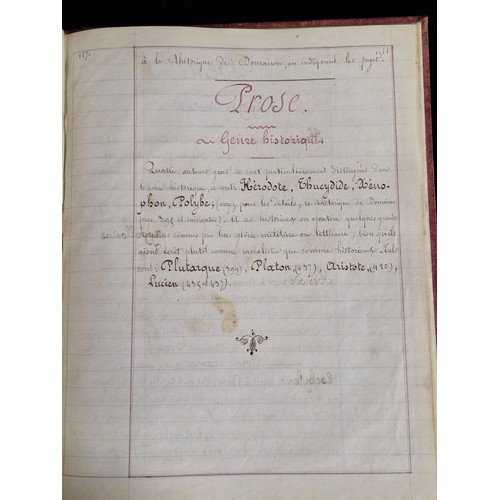 à la Rhétorique de Domairon, en indiquant les pages.
Prose.
Genre historique.
Quatre auteurs grecs se sont particulièrement distingués dans
le genre historique, ce sont: Hérodote, Thucydide, Xéno-
phon, Polybe; pour les détails, la Rhétorique de Domairon
395 et suivantes). A ces historiens on quelques grands
comme par leur gloire militaire ou littéraire, bien qu'ils
aient écrit plutôt comme moralistes que comme historiens. Tels
sont: Plutarque (399), Platon (437), Aristote (420),
Lucien (435-437).